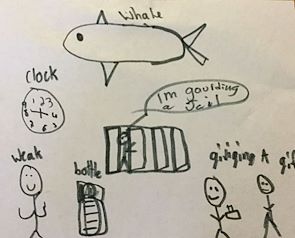 Whale
clock
Im goulding
a Jail
weak
bottle
giliging A gif